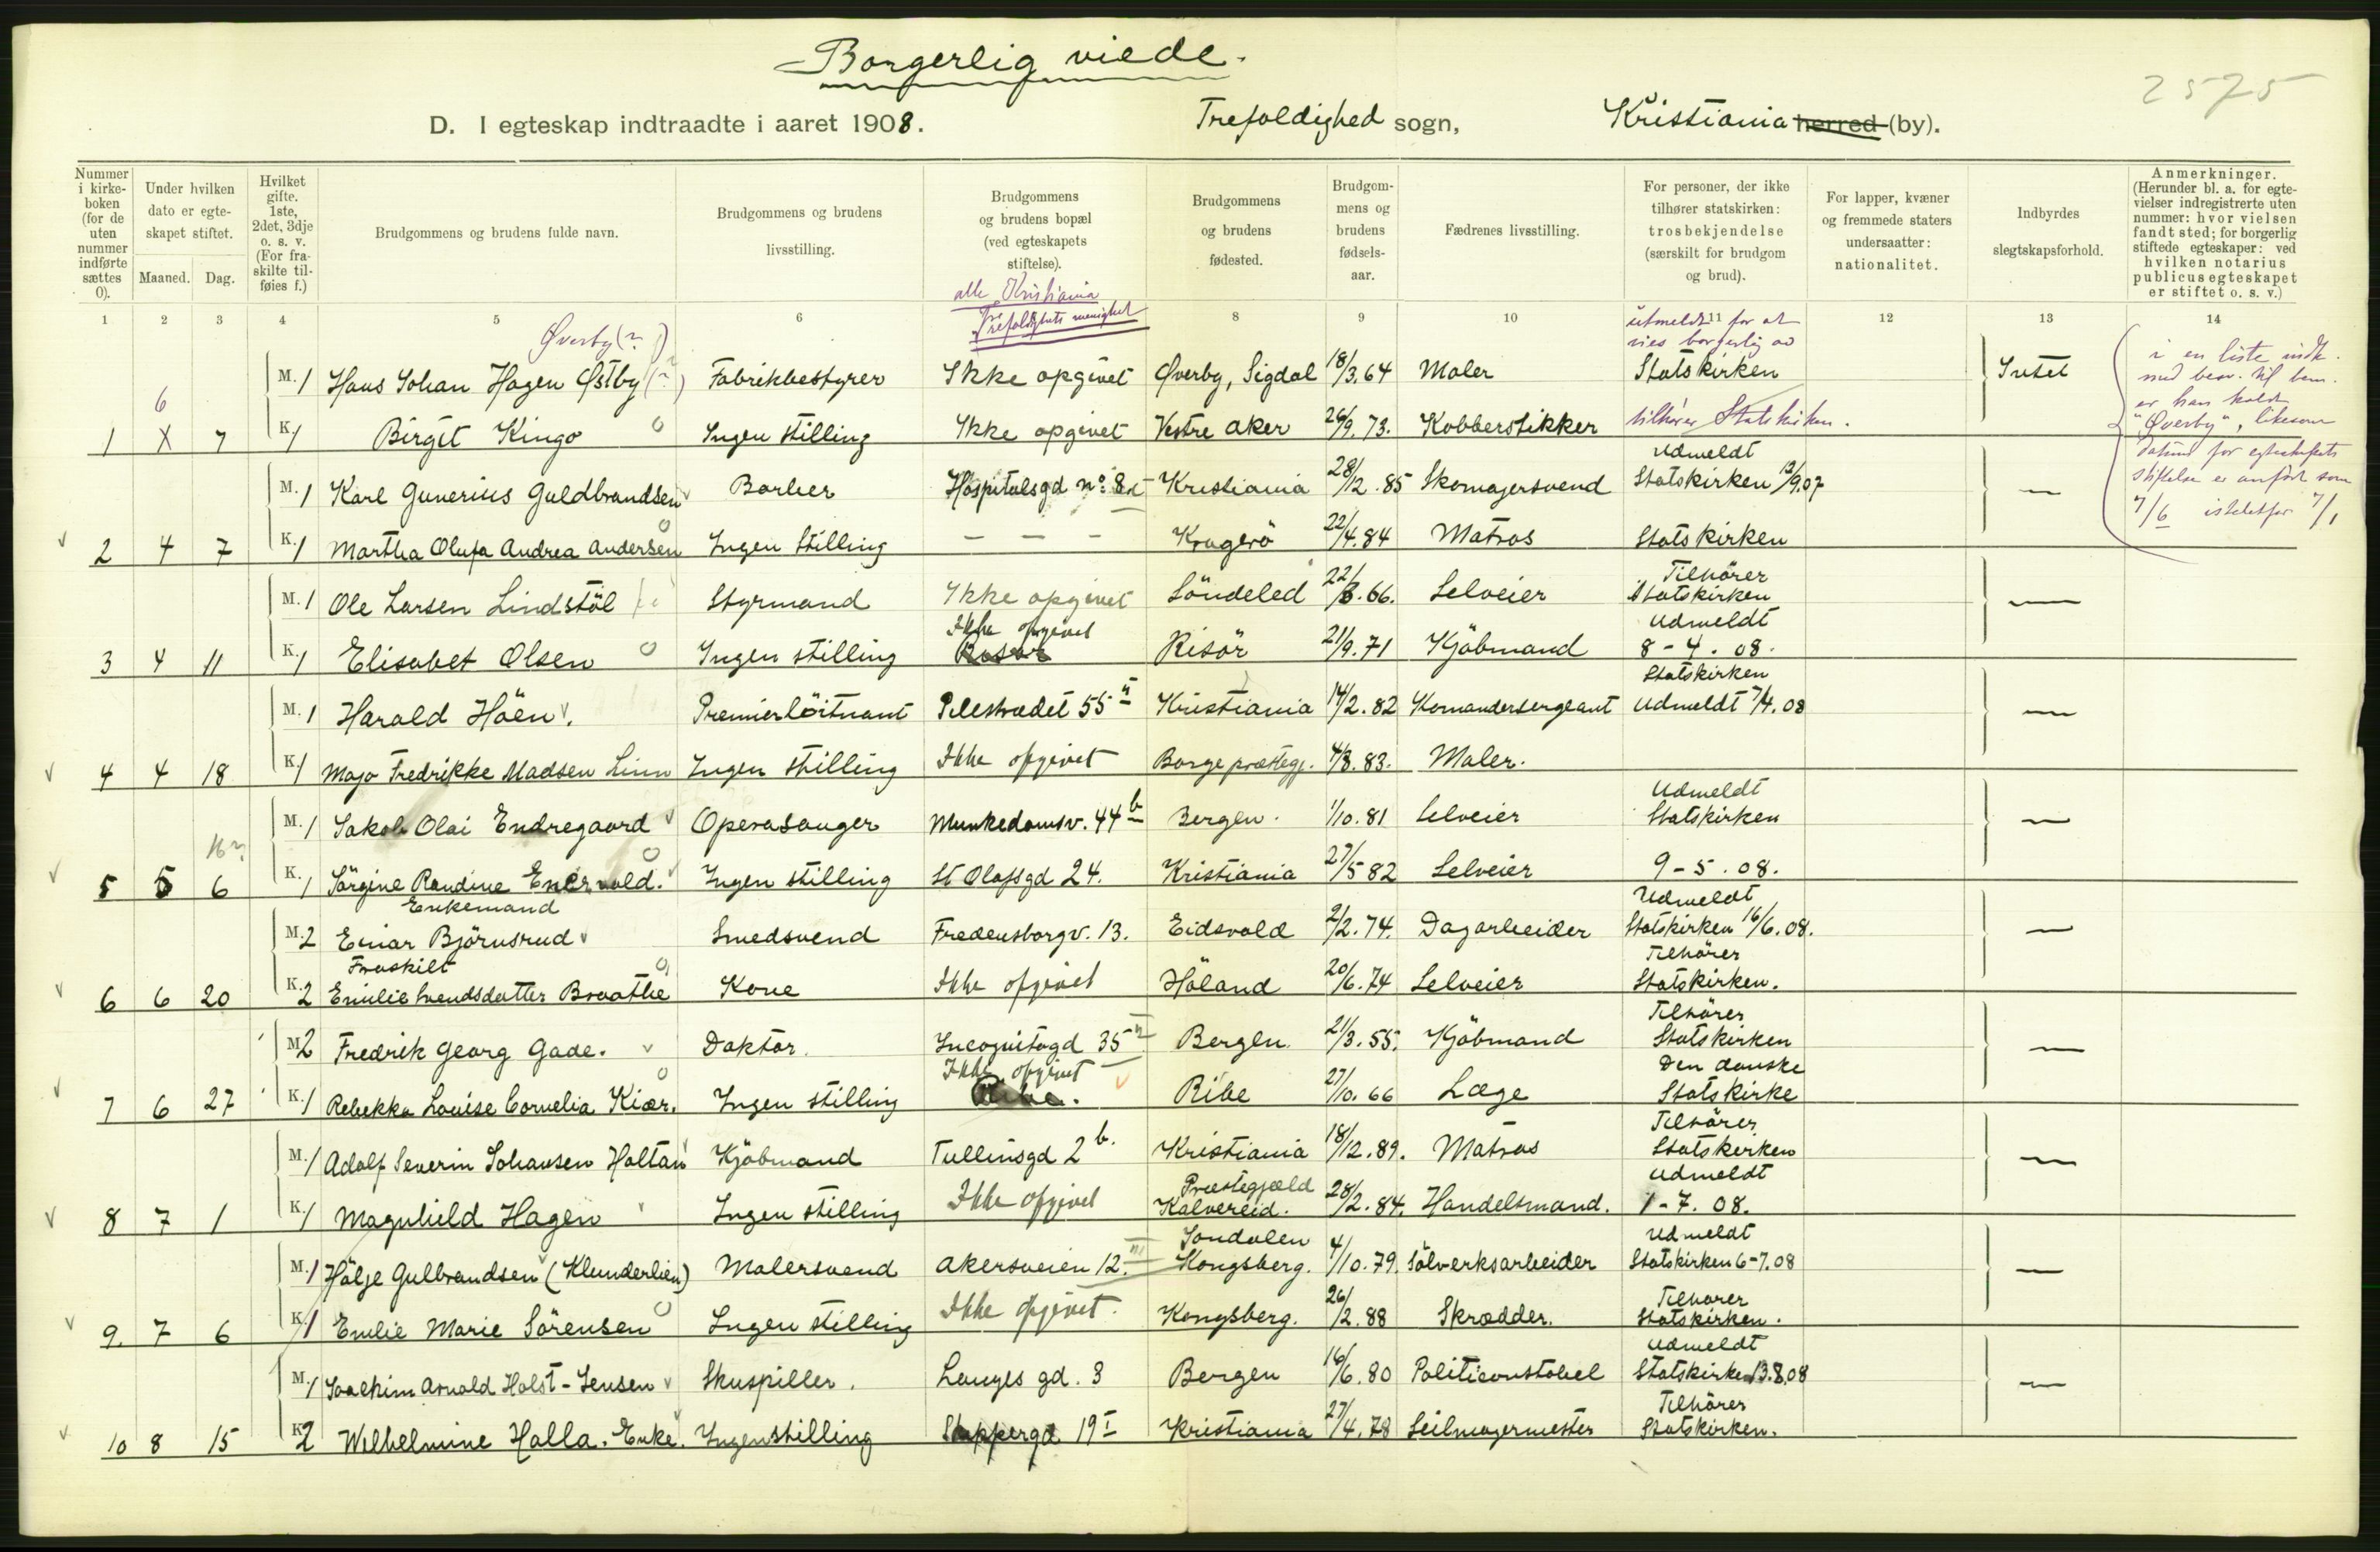 Borgerlig viede.
2575
D. I egteskap indtraadte i aaret 1908. Trefoldighed sogn, Kristiania herred (by).
Nummer i kirkeboken (for de uten nummer indførte sættes 0).
Under hvilken dato er egteskapet stiftet.
Maaned. Dag.
Hvilket gifte. 1ste, 2det, 3dje o. s. v. (For fraskilte tilføies f.)
Brudgommens og brudens fulde navn.
Brudgommens og brudens livsstilling.
Brudgommens og brudens bopæl (ved egteskapets stiftelse).
alle Kristiania
Trefoldigheds menighet
Brudgommens og brudens fødested.
Brudgommens og brudens fødselsaar.
Fædrenes livsstilling.
For personer, der ikke tilhører statskirken: trosbekjendelse (særskilt for brudgom og brud).
For lapper, kvæner og fremmede staters undersaatter: nationalitet.
Indbyrdes slegtskapsforhold.
Anmerkninger. (Herunder bl. a. for egtevielser indregistrerte uten nummer: hvor vielsen fandt sted; for borgerlig stiftede egteskaper: ved hvilken notarius publicus egteskapet er stiftet o. s. v.)
1 2 3 4 5 6 8 9 10 11 12 13 14
Øverby (?) utmeldt for at vies borgerlig av
M. 1 Hans Johan Hagen Østby (?) Fabrikbestyrer Ikke opgivet Øverby, Sigdal 18/3.64 Maler Statskirken Intet
1 X 6 7 K. 1 Birgit Kingo Ingen stilling Ikke opgivet Vestre Aker 26/9.73. Kobberstikker tilhører Statskirken.
i en liste indk.
med besv. til bem.
er han kaldt
"Øverby", likesom
datum for egteskapets
stiftelse er anført som
7/6 istedetfor 7/1
Udmeldt
M. 1 Karl Gunerius Guldbrandsen Barber Hospitalsgd no 8 Kristiania 28/12.85 Skomagersvend Statskirken 13/9.07 —
2 4 7 K. 1 Martha Olufa Andrea Andersen Ingen Stilling — — — Kragerö 22/4.84 Matros Statskirken
Tilhörer
M. 1 Ole Larsen Lindstöl Styrmand Ikke opgivet Söndeled 22/8.66. Selveier Statskirken —
Ikke opgivet Udmeldt
3 4 11 K. 1 Elisabet Olsen Ingen stilling Risör 21/9.71 Kjöbmand 8-4.08.
Statskirken
M. 1 Harald Höen Premierlöitnant Pilestrædet 55 II Kristiania 14/2.82 Komandersergeant Udmeldt 7/4.08 —
4 4 18 K. 1 Maja Fredrikke Madsen Linn Ingen stilling Ikke opgivet Borge præstegj. 4/8.83. Maler.
Udmeldt
M. 1 Jakob Olai Endregaard Operasanger Munkedamsv. 44 b Bergen. 1/10.81 Selveier Statskirken —
16?
5 5 6 K. 1 Sörgine Randine Enervold. Ingen stilling St Olafsgd 24. Kristiania 27/5 82 Selveier 9-5.08.
Enkemand Udmeldt
M. 2 Einar Björnsrud Smedsvend Fredensborgv. 13. Eidsvold 2/2.74. Dagarbeider Statskirken 16/6.08. —
Fraskilt Tilhörer
6 6 20 K. 2 Emilie Svendsdatter Braathe Kone Ikke opgivet Höland 20/6.74 Selveier Statskirken.
Tilhörer
M. 2 Fredrik Georg Gade. Doktor. Incognitogd 35 II Bergen 21/3.55. Kjöbmand Statskirken —
Ikke opgivet Den danske
7 6 27 K. 1 Rebekka Louise Cornelia Kiær. Ingen stilling Ribe. Ribe 27/10.66 Læge Statskirke
Tilhörer
M. 1 Adolf Severin Johansen Holtan Kjöbmand Tullinsgd 2 b. Kristiania 18/12.89. Matros Statskirken —
Præstegjæld Udmeldt
8 7 1 K. 1 Magnhild Hagen Ingen stilling Ikke opgivet Kalvereid. 28/2.84. Handelsmand. 1-7.08.
Jondalen Udmeldt
M. 1 Hölje Gulbrandsen (Klunderlien) Malersvend Akersveien 12. III Kongsberg. 4/10.79. Sölverksarbeider Statskirken 6-7.08 —
Tilhorer
9. 7 6 K. 1 Emilie Marie Sörensen Ingen stilling Ikke opgivet. Kongsberg. 26/2.88 Skrædder. Statskirken.
Udmeldt
M. 1 Joachim Arnold Holst-Jensen Skuspiller. Langes gd. 3 Bergen 16/6.80 Politiconstabel Statskirken 13.8.08 —
Tilhörer
10 8 15 K. 2 Wilhelmine Holla. Enke. Ingen stilling 19 I Kristiania 27/4.78 Seilmagermester Statskirken.